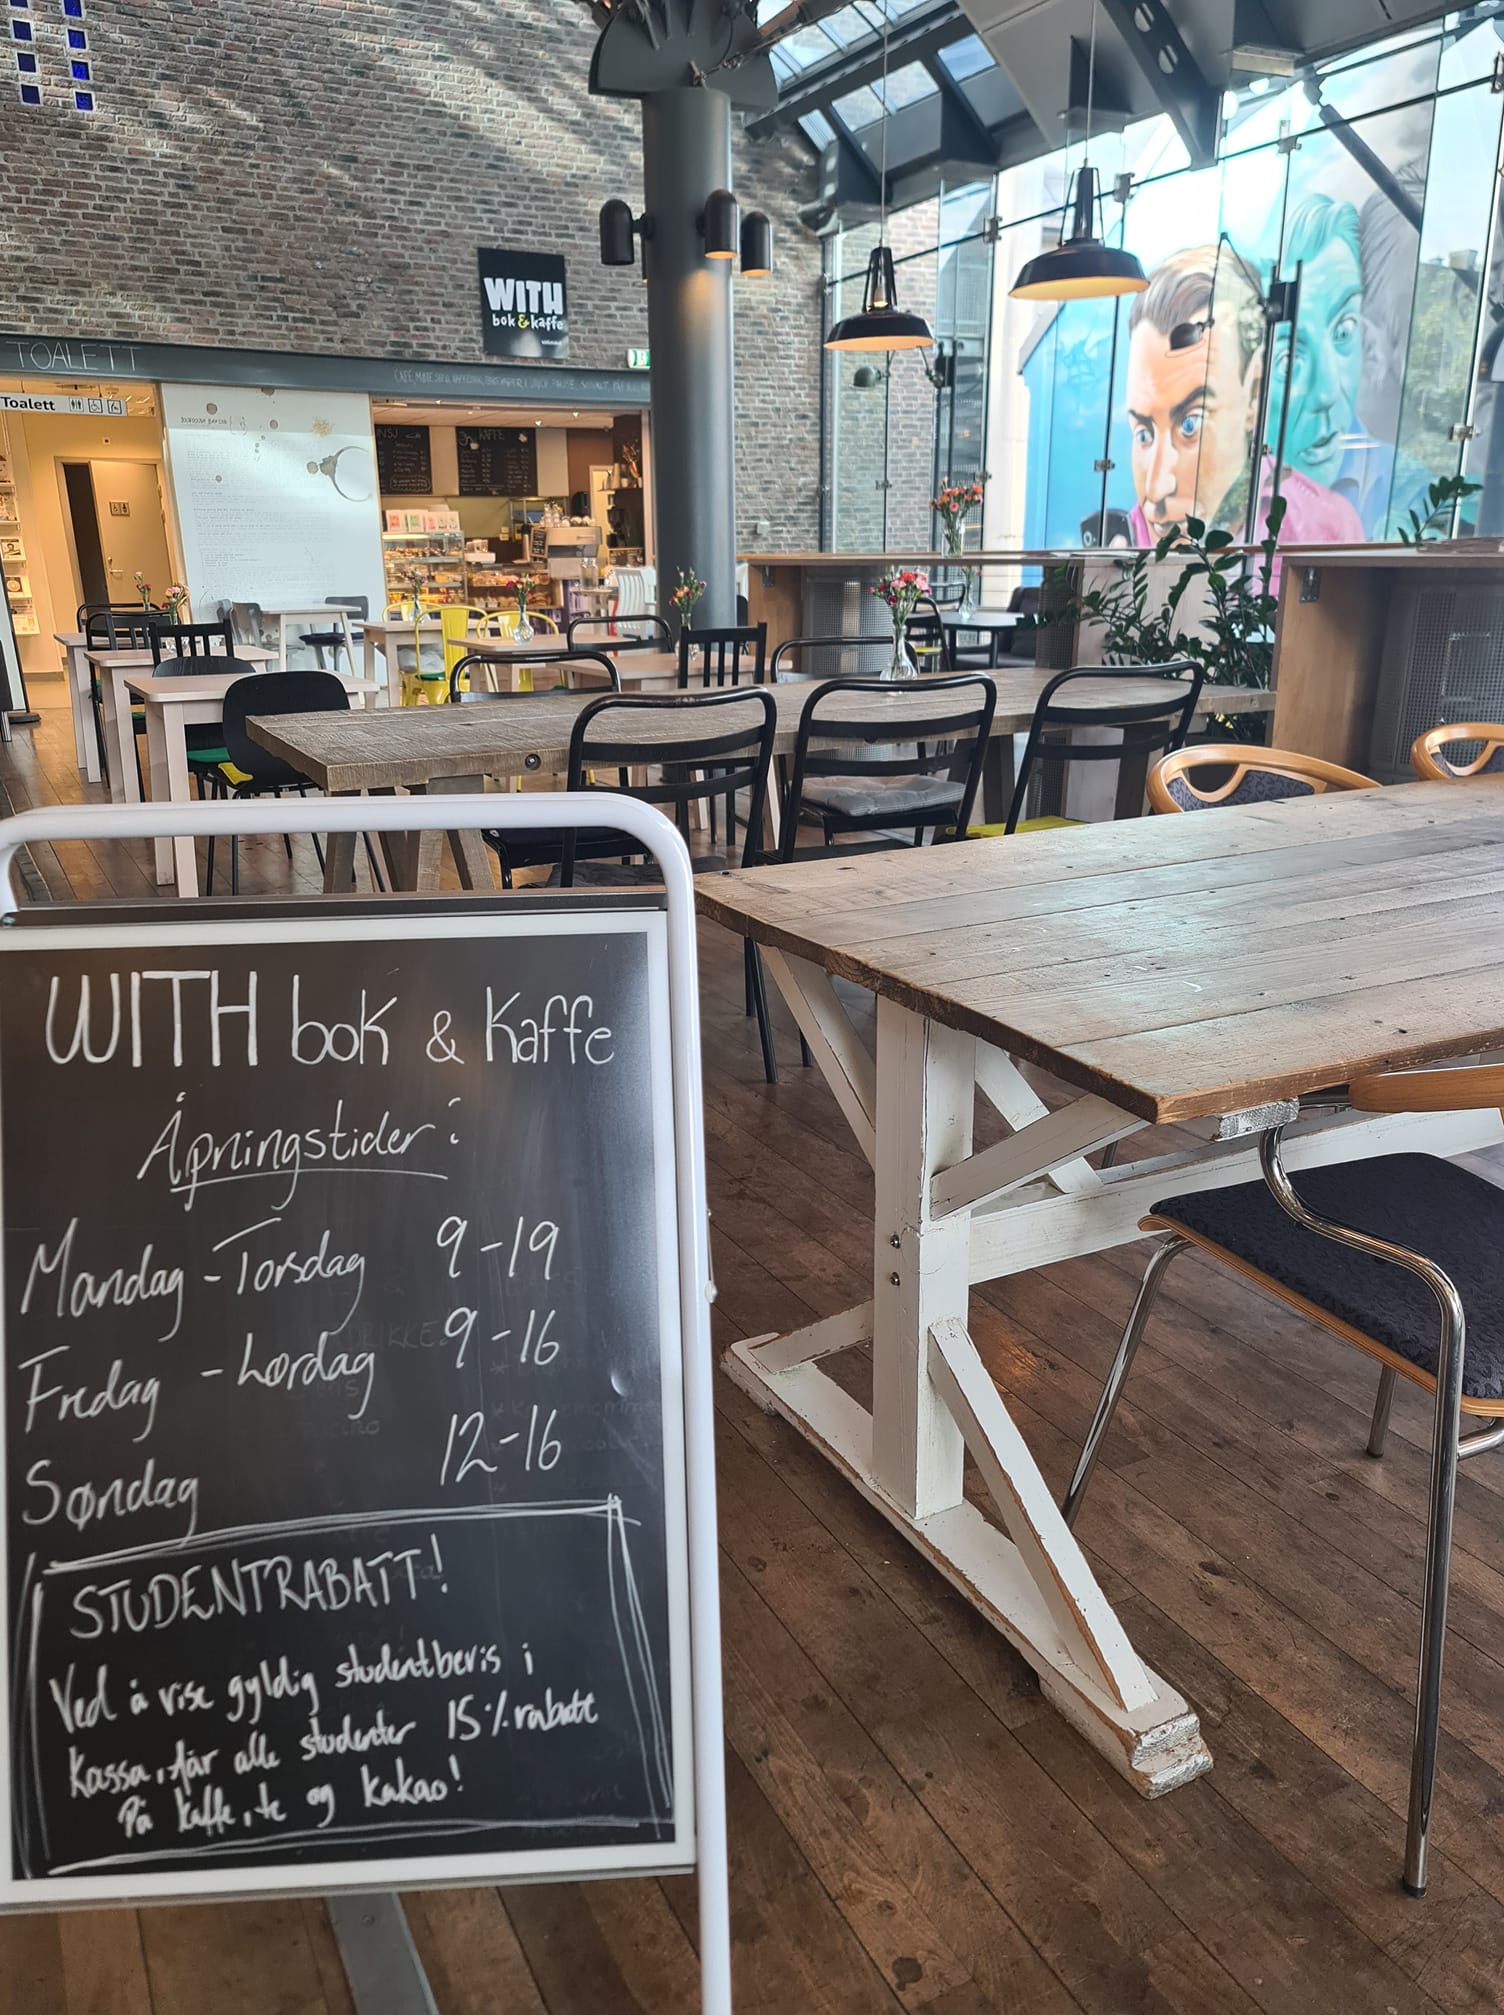 WITH
bok & kaffe
TOALETT
Toalett
KAFFE
WITH bok & kaffe
Åpningstider:
Mandag - Torsdag 9-19
Fredag - Lørdag 9-16
Søndag 12-16
STUDENTRABATT!
Ved å vise gyldig studentbevis i
kassa, får alle studenter 15% rabatt
På kaffe, te og kakao!